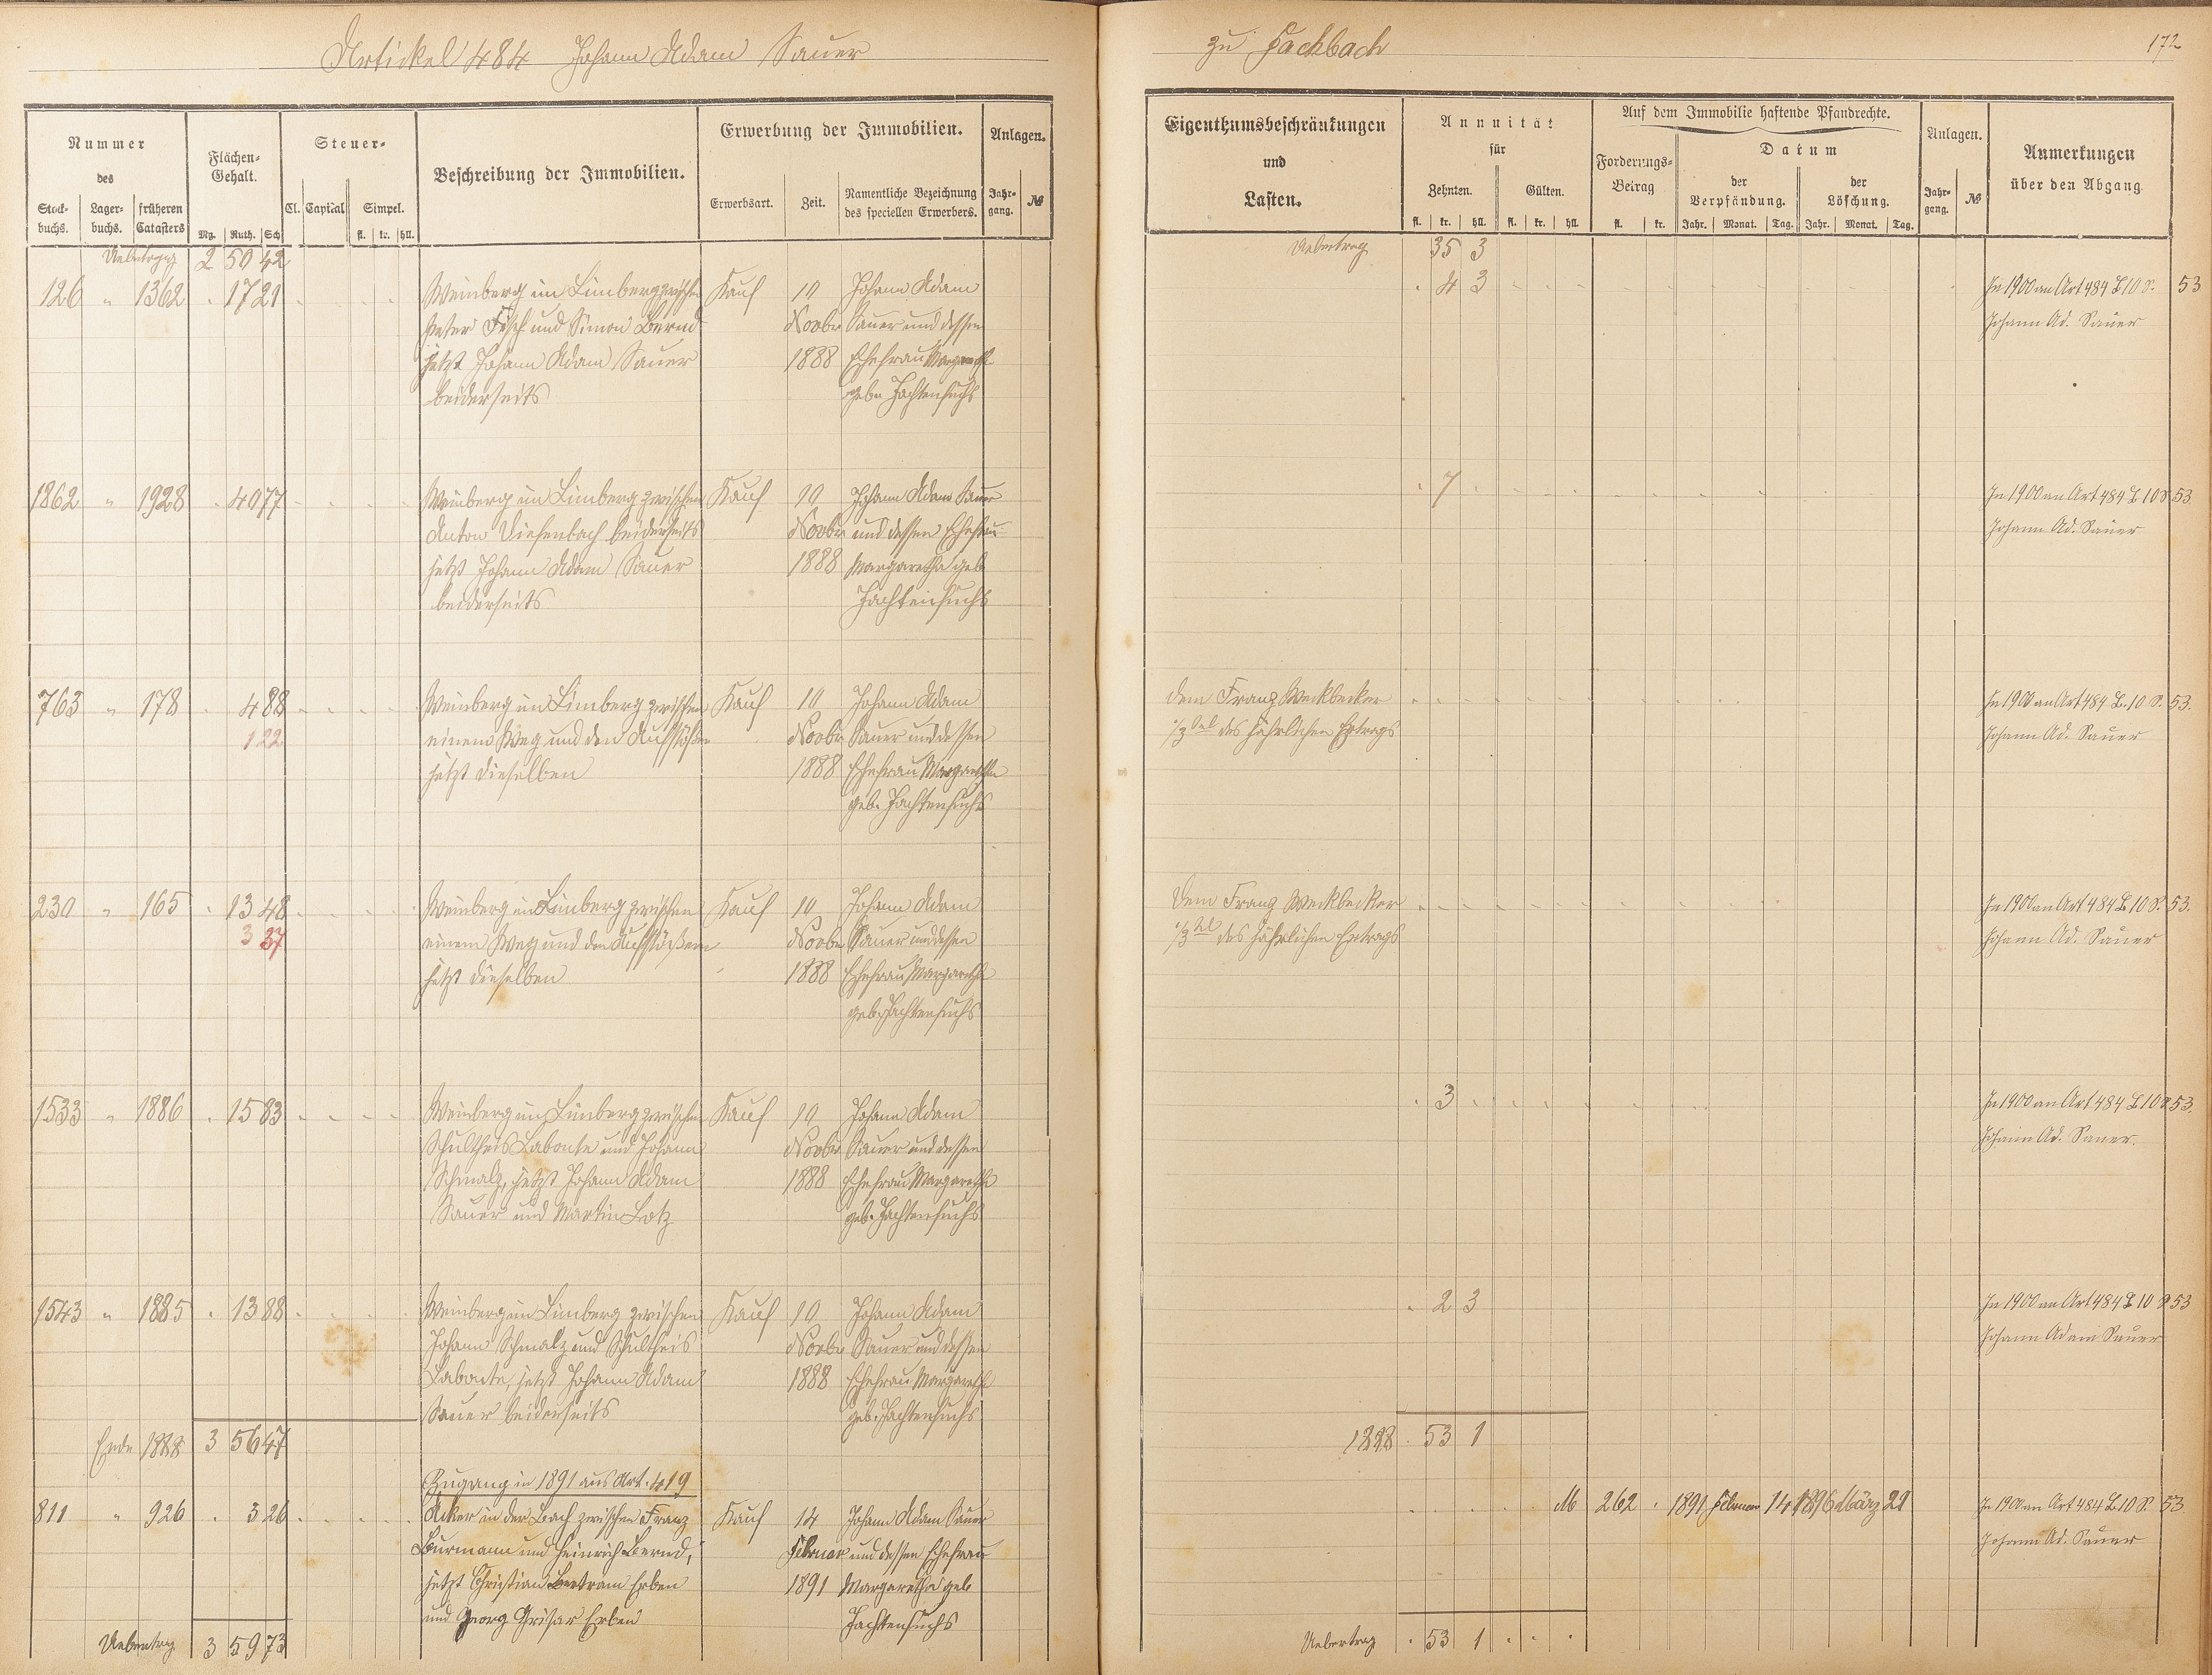 Artikel 484 Johann Adam Sauer
zu Fachbach
172
Nummer
des
Stock-buchs.
Lager-buchs.
früheren Catasters
Flächen-Gehalt.
Mg. Ruth. Sch
Steuer-
Cl. Capital Simpel.
fl. kr. hll.
Beschreibung der Immobilien.
Erwerbung der Immobilien.
Erwerbsart.
Zeit.
Namentliche Bezeichnung des speciellen Erwerbers.
Anlagen.
Jahr-gang. №
Eigenthumsbeschränkungen
und
Lasten.
Annuität
für
Zehnten. Gülten.
fl. kr. hll. fl. kr. hll.
Auf dem Immobilie haftende Pfandrechte.
Forderungs-Betrag
fl. kr.
Datum
der Verpfändung.
der Löschung.
Jahr. Monat. Tag. Jahr. Monat. Tag.
Anlagen.
Jahr-gang. №
Anmerkungen
über den Abgang
Uebertrag 2 50 42
Uebertrag 35 3
126 " 1362 . 17 21 Weinberg im Limberg zwischen Kauf 10 Johann Adam
Peter Fisch und Simon Bernd Novbr Sauer und dessen
jetzt Johann Adam Sauer 1888 Ehefrau Margareth
beiderseits gebn Jachtenfuchs
. 4 3 In 1900 an Art 484 L 10 S. 53
Johann Ad. Sauer
1862 " 1928 . 40 77 Weinberg im Limberg zwischen Kauf 10 Johann Adam Sauer
Anton Diefenbach beiderseits Novbr und dessen Ehefrau
jetzt Johann Adam Sauer 1888 Margaretha geb
beiderseits Jachtenfuchs
. 7 In 1900 an Art 484 L 10 S 53
Johann Ad. Sauer
763 " 178 . 4 88 Weinberg im Limberg zwischen Kauf 10 Johann Adam
1 22 einem Weg und den Aufstößern Novbr Sauer und dessen
jetzt dieselben 1888 Ehefrau Margaretha
geb. Jachtenfuchs
dem Franz Weckbecker
1/3 tel des jährlichen Ertrags
In 1900 an Art 484 L. 10 S. 53.
Johann Ad. Sauer
230 " 165 . 13 48 Weinberg im Limberg zwischen Kauf 10 Johann Adam
3 37 einem Weg und den Aufstößern Novbr Sauer und dessen
jetzt dieselben 1888 Ehefrau Margareth
geb. Jachtenfuchs
Dem Franz Weckbecker
1/3 tel des jährlichen Ertrags
In 1900 an Art 484 L 10 S. 53.
Johann Ad. Sauer
1533 " 1886 . 15 83 Weinberg im Limberg zwischen Kauf 10 Johann Adam
Schultheis Labonte und Johann Novbr Sauer und dessen
Schmalz, jetzt Johann Adam 1888 Ehefrau Margaretha
Sauer und Martin Lotz geb. Jachtenfuchs
. 3 In 1900 an Art 484 L 10 S 53.
Johann Ad. Sauer.
1543 " 1885 . 13 88 Weinberg im Limberg zwischen Kauf 10 Johann Adam
Johann Schmalz und Schultheis Novbr Sauer und dessen
Labonte, jetzt Johann Adam 1888 Ehefrau Margareth
Sauer beiderseits geb. Jachtenfuchs
. 2 3 In 1900 an Art 484 L 10 S 53
Johann Adam Sauer
Ende 1888 3 56 47
1888 . 53 1
Zugang in 1891 aus Art. 419
811 " 926 . 3 26 Acker in der Bach zwischen Franz Kauf 14 Johann Adam Sauer
Burmann und Heinrich Bernd, Februar und dessen Ehefrau
jetzt Christian Bertram Erben 1891 Margaretha geb
und Georg Grisar Erben Jachtenfuchs
M 262 . 1891 Februar 14 1896 März 21 In 1900 an Art 484 L 10 S. 53
Johann Ad. Sauer
Uebertrag 3 59 73
Uebertrag . 53 1